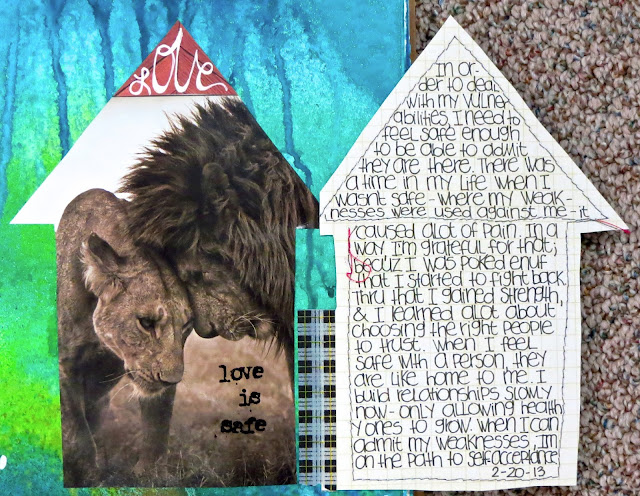 LOVE
love
is
safe
In or-
der to deal
with my vulner-
abilities, I need to
feel safe enough
to be able to admit
they are there. There was
a time in my life when I
wasnt safe - where my weak-
nesses were used against me - it
caused alot of pain. In a
way I'm grateful for that;
becuz I was poked enuf
that I started to fight back
thru that I gained strength,
& I learned alot about
choosing the right people
to trust. when I feel
safe with a person, they
are like home to me. I
build relationships slowly
now - only allowing health
y ones to grow. when I can
admit my weaknesses, I'm
on the path to self-acceptance
2-20-13